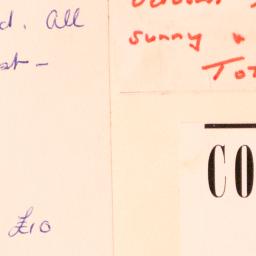 d. All
st -
£10
sunny &
To
CO